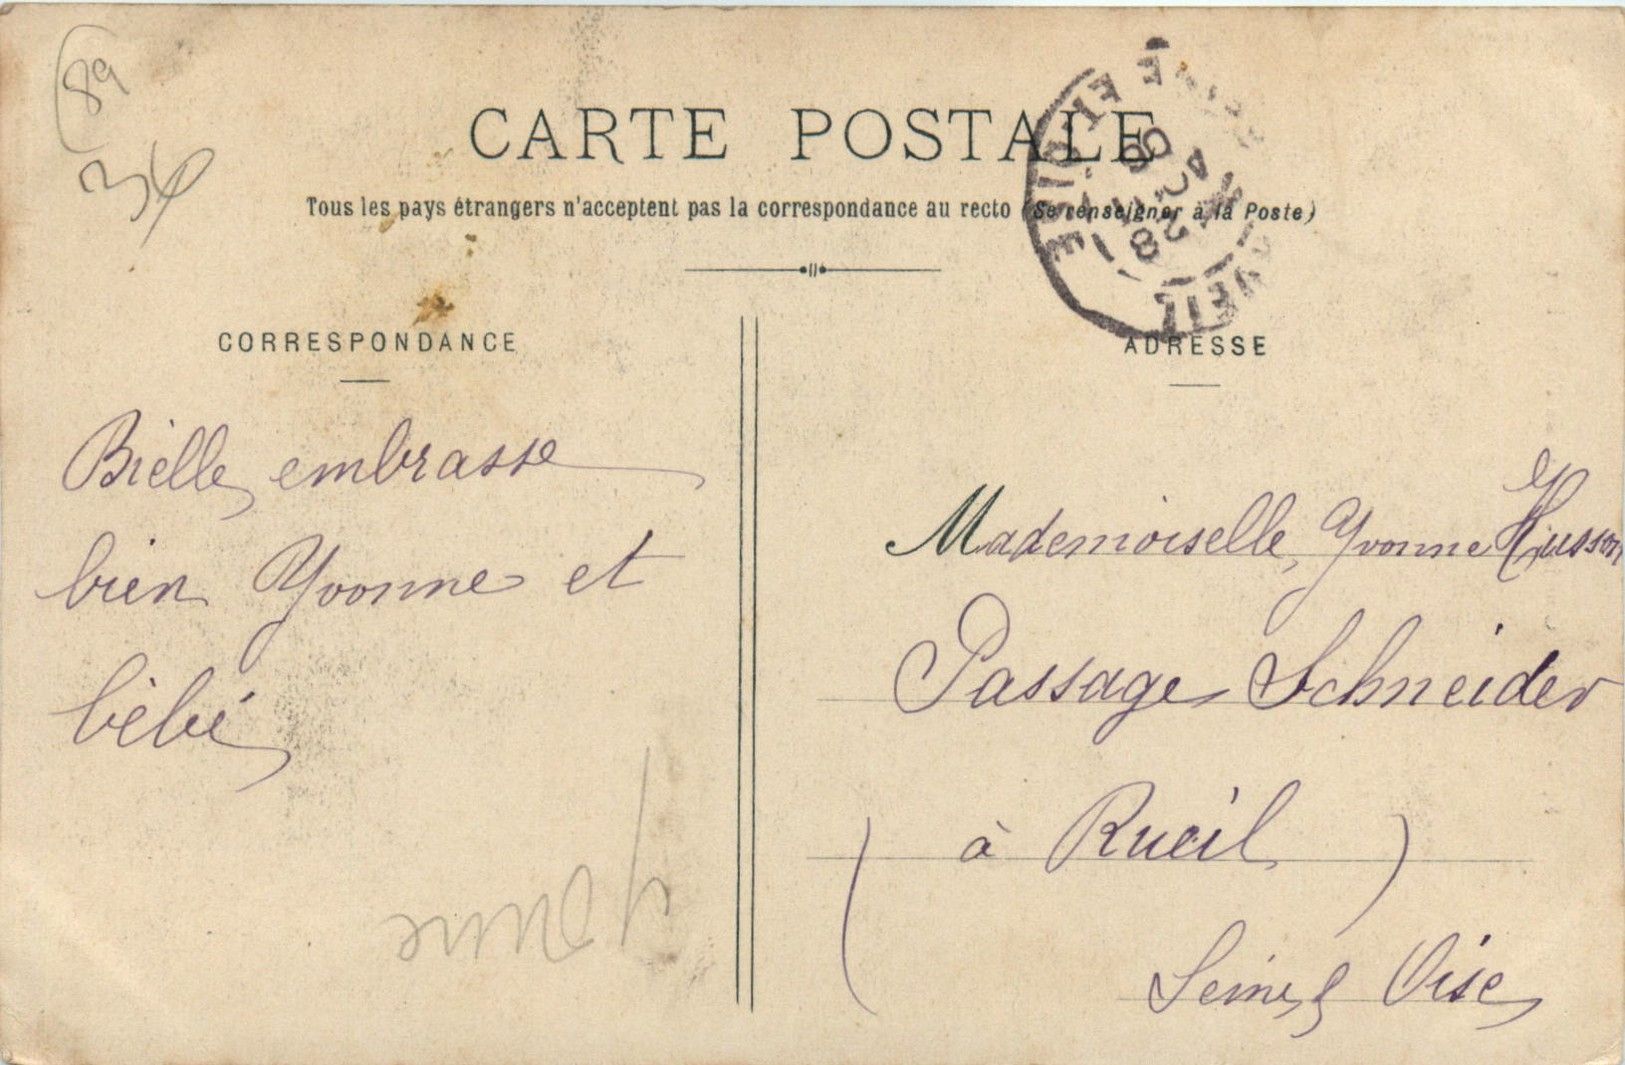 89
CARTE POSTALE
Tous les pays étrangers n'acceptent pas la correspondance au recto (Se renseigner à la Poste)
CORRESPONDANCE
Bielle embrasse
bien Yvonne et
bébé
Yonne
ADRESSE
Mademoiselle Yvonne Husson
Passage Schneider
( à Rueil )
Seine & Oise
28